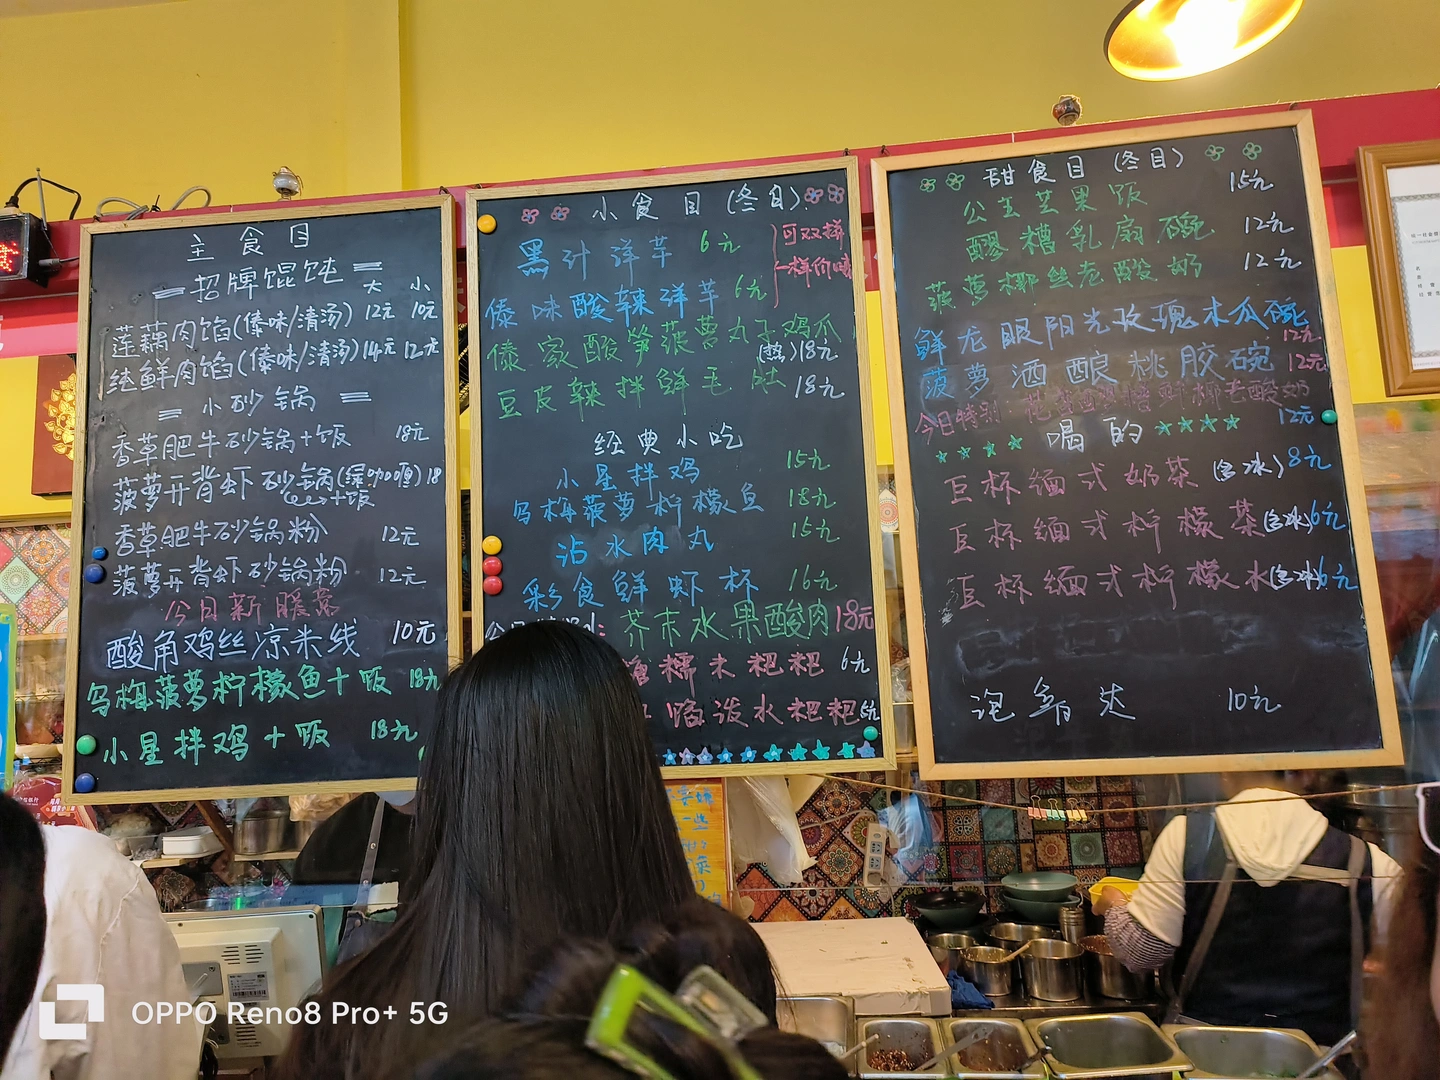 主食目
招牌馄饨
大 小
莲藕肉馅(傣味/清汤) 12元 10元
纯鲜肉馅(傣味/清汤) 14元 12元
小砂锅
香草肥牛砂锅+饭 18元
菠萝开背虾砂锅(绿咖喱) 18
+饭
香草肥牛砂锅粉 12元
菠萝开背虾砂锅粉 12元
今日新
酸角鸡丝凉米线 10元
乌梅菠萝柠檬鱼+饭 18元
小星拌鸡+饭 18元
小食目(冬目)
黑汁洋芋 6元
可双拼
一样价哦
傣味酸辣洋芋 6元
傣家酸笋菠萝丸子鸡爪
(热)18元
豆皮辣拌鲜毛肚 18元
经典小吃
小星拌鸡 15元
乌梅菠萝柠檬鱼 18元
沾水肉丸 15元
彩食鲜虾杯 16元
芥末水果酸肉 18元
糖糯米粑粑 6元
馅泼水粑粑 6元
甜食目(冬目)
公主芒果饭 15元
醪糟乳扇碗 12元
菠萝椰丝老酸奶 12元
鲜龙眼阳光玫瑰木瓜碗
12元
菠萝酒酿桃胶碗 12元
今日特别:
老酸奶
12元
喝的
巨杯缅式奶茶(含冰) 8元
巨杯缅式柠檬茶(含冰) 6元
巨杯缅式柠檬水(含冰) 6元
泡鲁达 10元
OPPO Reno8 Pro+ 5G